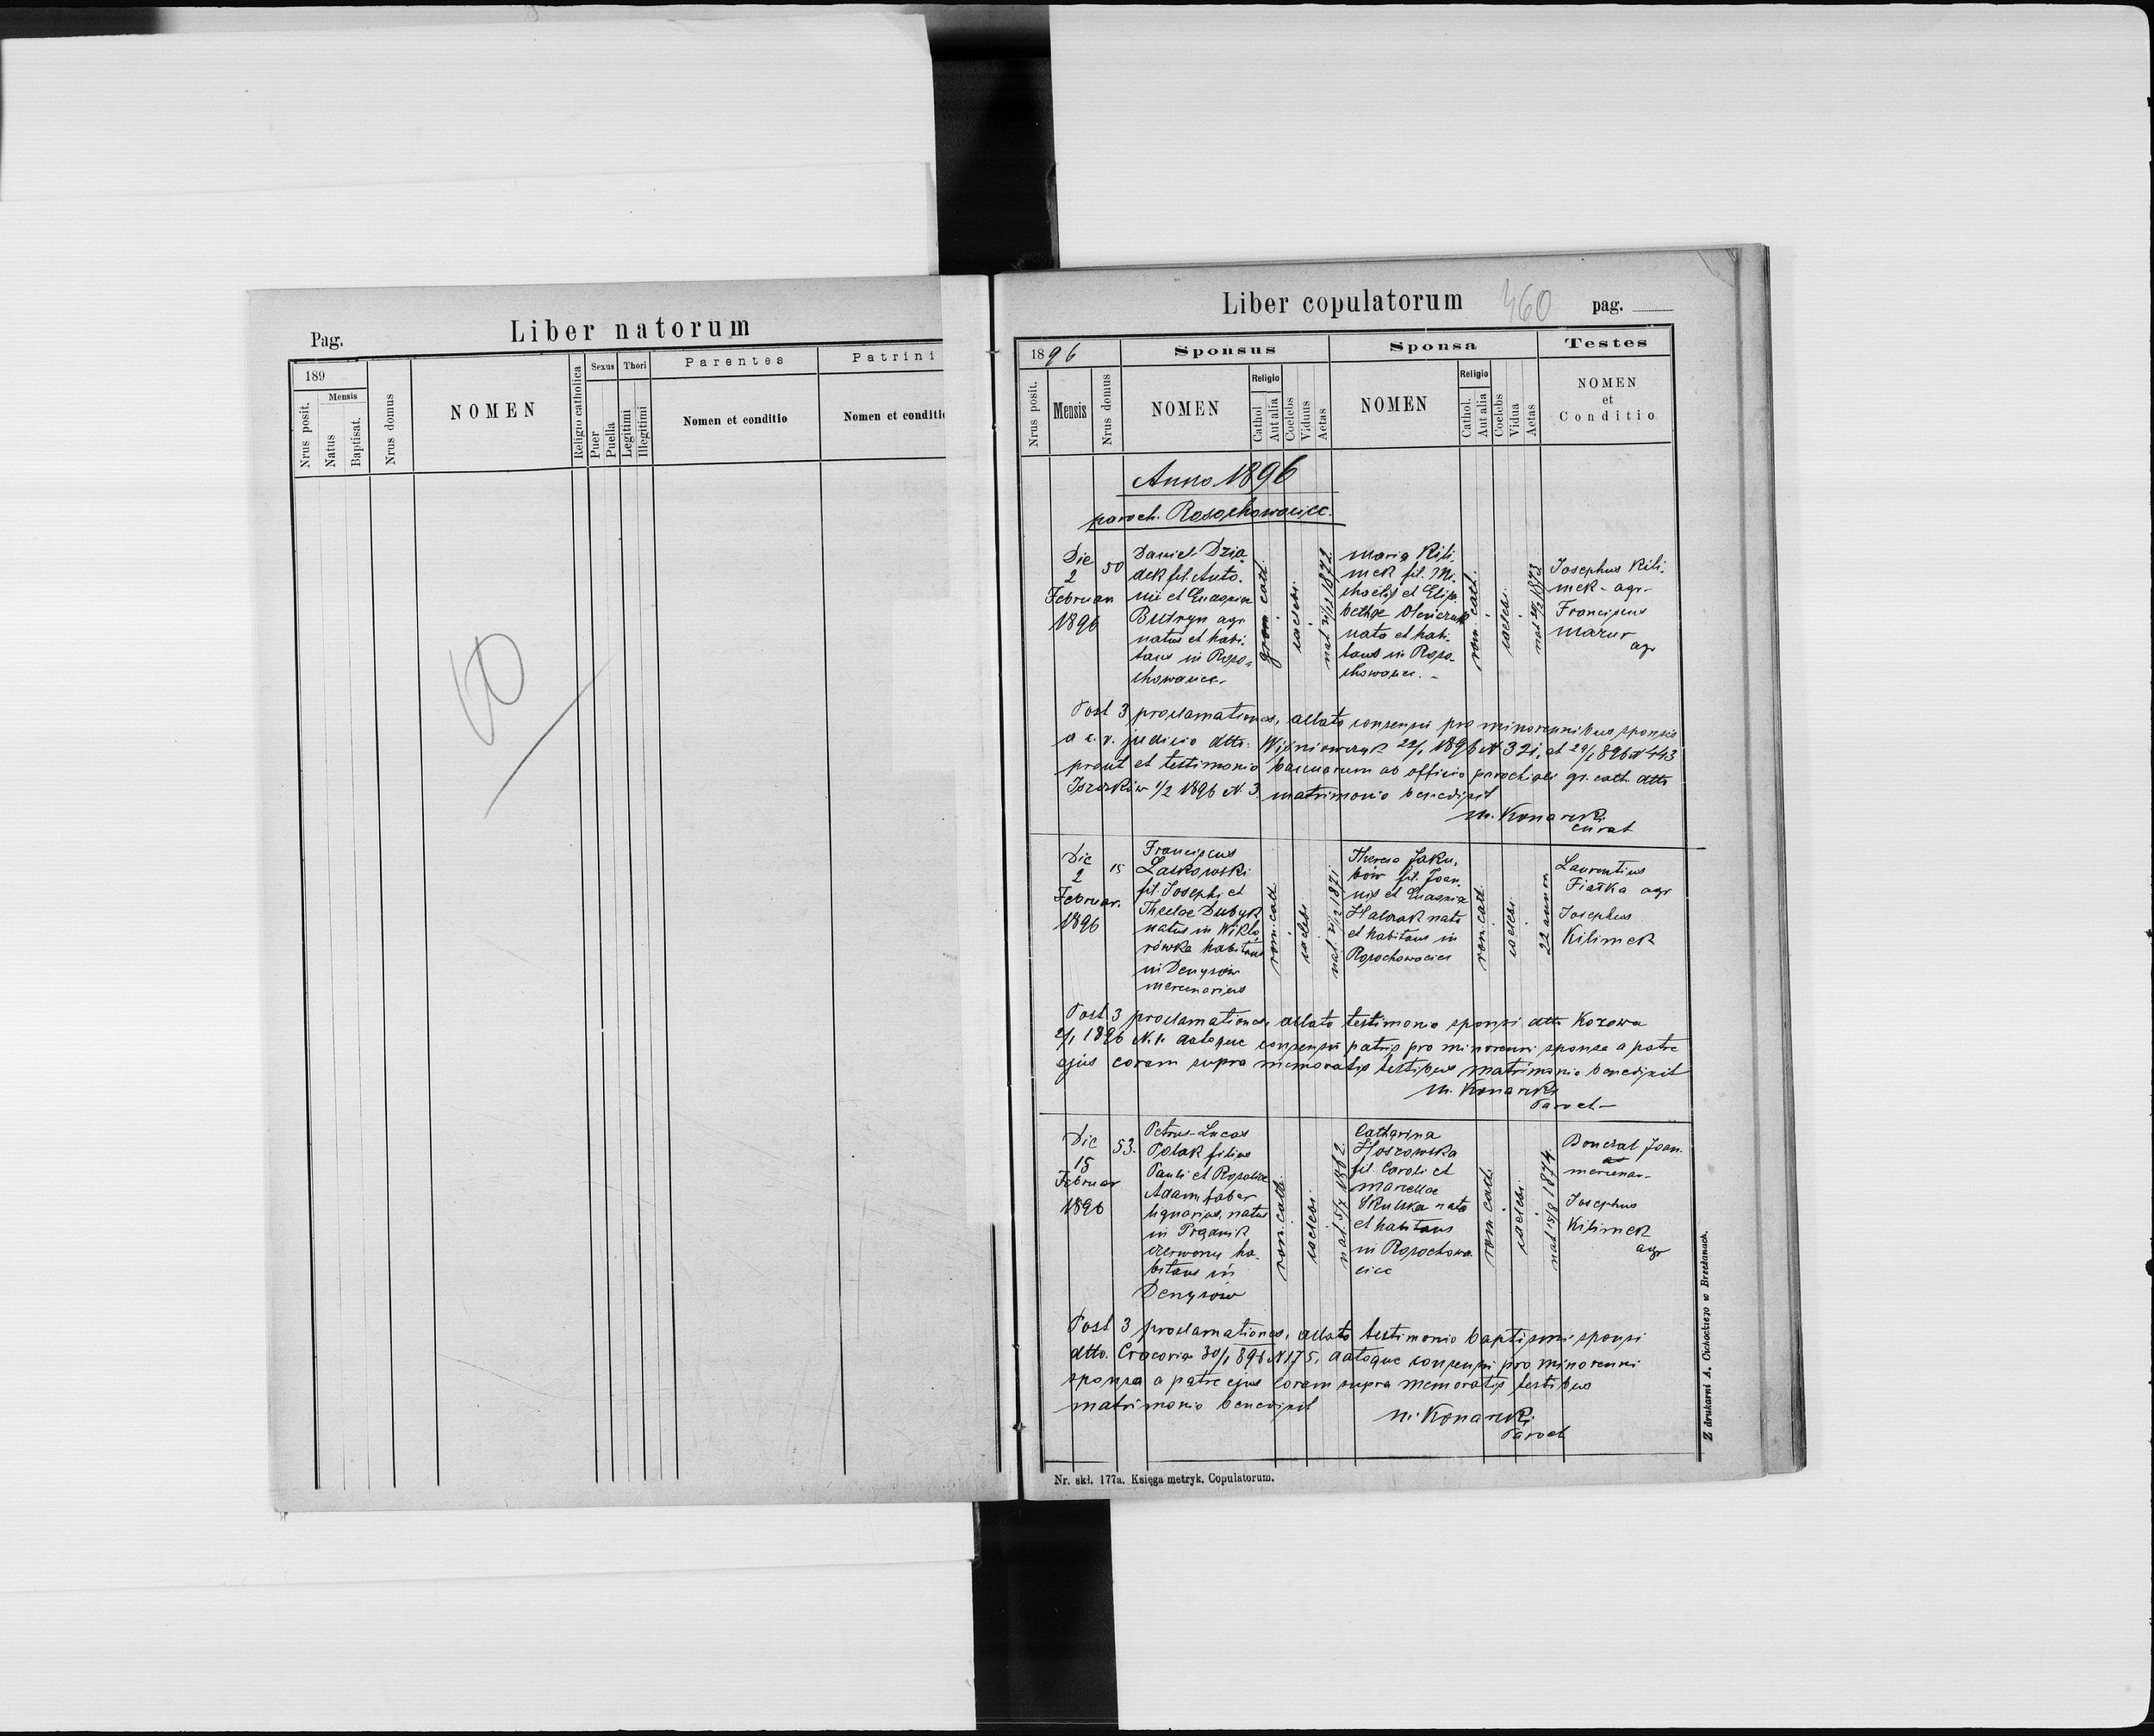 Pag.
Liber natorum
189
Nrus posit.
Mensis
Natus
Baptisat.
Nrus domus
NOMEN
Religio catholica
Sexus
Puer
Puella
Thori
Legitimi
Illegitimi
Parentes
Nomen et conditio
Patrini
Nomen et conditi
Liber copulatorum
460
pag.
1896
Nrus posit.
Mensis
Nrus domus
Sponsus
NOMEN
Religio
Cathol.
Aut alia
Coelebs
Viduus
Aetas
Sponsa
NOMEN
Religio
Cathol.
Aut alia
Coelebs
Vidua
Aetas
Testes
NOMEN
et
Conditio
Anno 1896
paroch. Rosochowaciec.
Die
2
Februar
1896
50
Daniel Dzia
dek fil. Anto.
nii et
agr.
natus et habi.
tans in Roso.
chowaciec.
coelebs.
1872
Maria Kili.
mek fil. Mi.
chaelis et Elisa
bethae
nata et habi.
tans in Roso.
chowaciec.
rom. cath.
coelebs.
1873
Josephus Kili.
mek - agr.
Franciscus
Mazur
agr
Post 3 proclamationes, allato consensu pro minorennibus sponsis
a c. r. judicio dtto. Wiśniowczyk 1896 N 321, et 896 N 443
prout et testimonio bannorum ab officio parochiali gr. cath. dtto
1/2 1896 N. 3. matrimonio benedixit
M. Konarski
curat
Die
2
Februar.
1896
15
Franciscus
Laskowski
fil. Josephi et
Theclae Dubyk
natus in Wikto
rówka habitans
in Denysów
mercenarius
rom. cath.
coelebs
1871.
Theresa Jaku.
bów fil. Joan
nis et
nata
et habitans in
Rosochowaciec
rom. cath.
coelebs.
22 annor.
Laurentius
Fiałka agr
Josephus
Kilimek
Post 3 proclamationes, allato testimonio sponsi dtto Kozowa
1896 N. 1. datoque consensu patris pro minorenni sponsa a patre
ejus coram supra memoratis testibus matrimonio benedixit
M. Konarski
Paroch
Die
15
Februar
1896
53.
Petrus-Lucas
Polak filius
Pauli et Rosaliae
Adam faber
lignarius, natus
in Prądnik
czerwony ha.
bitans in
Denysów
rom. cath.
coelebs.
Catharina
Hoszowska
fil. Caroli et
Marcellae
nata
et habitans
in Rosochowa.
ciec
rom. cath.
coelebs.
nat 15/8 1874.
Joan.
mercenar.
Josephus
Kilimek
agr
Post 3 proclamationes, allato testimonio baptismi sponsi
dtto. Cracoviae 30/1 896 N 175, datoque consensu pro minorenni
sponsa a patre ejus coram supra memoratis testibus
matrimonio benedixit
M. Konarski
Paroch
Nr. skł. 177a. Księga metryk. Copulatorum.
Z drukarni A. Cichockiego w Brzeżanach.